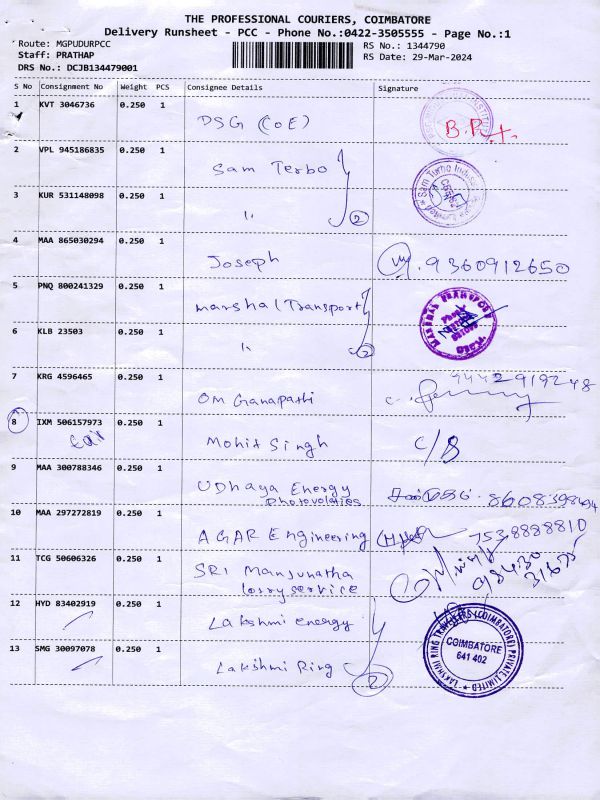 THE PROFESSIONAL COURIERS, COIMBATORE
Delivery Runsheet - PCC - Phone No.:0422-3505555 - Page No.:1
Route: MGPUDURPCC
RS No.: 1344790
Staff: PRATHAP
RS Date: 29-Mar-2024
DRS No.: DCJB134479001
S No Consignment No Weight PCS Consignee Details Signature
1 KVT 3046736 0.250 1 DSG (COE) B.R.t.
2 VPL 945186835 0.250 1 Sam Terbo
3 KUR 531148098 0.250 1 " 2
4 MAA 865030294 0.250 1 Joseph 9360912650
5 PNQ 800241329 0.250 1 Marshal Transport
6 KLB 23503 0.250 1 " 2
7 KRG 4596465 0.250 1 OM Ganapathi 9442919248
8 IXM 506157973 0.250 1 Mohit Singh C/B
9 MAA 300788346 0.250 1 UDhaya Energy
Photovoltaics 8608398494
10 MAA 297272819 0.250 1 AGAR Engineering 7538888810
11 TCG 50606326 0.250 1 SRI Manjunatha
lorry service 98430
31675
12 HYD 83402919 0.250 1 Lakshmi energy
13 SMG 30097078 0.250 1 Lakshmi Ring 2
LAKSHMI RING TRAVELERS (COIMBATORE) PRIVATE LIMITED
COIMBATORE
641 402